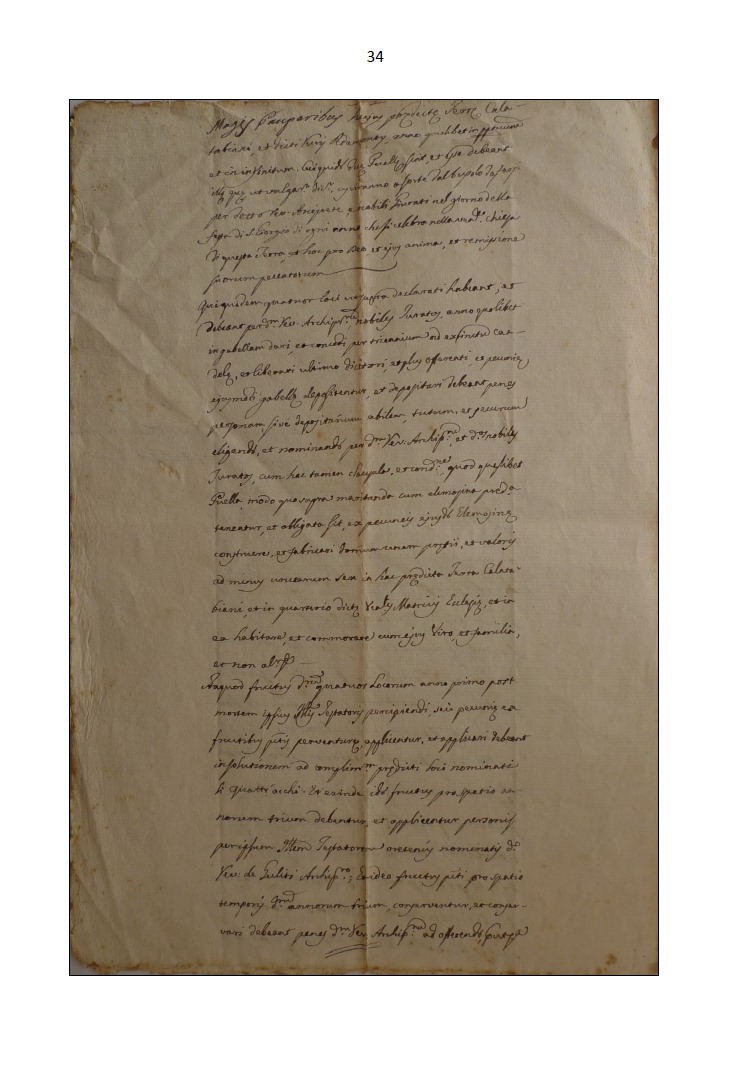 34
Magis Pauperibus huius predictę Terrę Cala-
tabiani, et dicti anno quolibet in
et in infinitum. Puellę sint, et esse debeant
illę quę ut à sorte dal
per detto Rev. Arciprete e nobili Giurati nel giorno della
festa di S. Giorgio di ogni anno che si celebra nella chiesa
di questa Terra, et hoc pro Deo et ejus anima, et remissione
suorum peccatorum
Qui quidem quatuor loci ut supra declarati habeant, et
debeant per dm Rev. Archip. nobiles Juratos, anno quolibet
in gabellam dari, et concedi per triennium ad extinctu can-
delę, et liberari ultimo dicitori, et plus offerenti, et pecunię
ejusmodi gabellę depositentur, et depositari debeant penes
personam, sive depositarium abilem, tutum, et securum
eligends, et nominands per dm Rev. Archip., et ds nobiles
Juratos, cum hac tamen clausula, et cond.ne, quod quęlibet
Puella, modo quo supra maritanda cum elemosina pred.a
teneatur, et obligata sit, ex pecuneis ejusd. Elemosinę
construere, et fabricari domum unam pretii, et valoris
ad minus unciarum sex in hac prędicta Terra Calata-
biani, et in quarterio dictę Matricis Eclesię, et in
ea habitare, et commorare cum ejus Viro, et familia,
et non
Itaquod fructus quatuor Locorum anno primo post
mortem ipsius Testatoris percipiendi, seu pecunię ex
fructibus perventurę, applicentur, et applicari debeant
in solutionem ad complim.m prędicti loci nominati
li quattr'acchi. Et exinde fructus pro spatio an-
norum trium debentur, et applicentur personis
per ipsum Illem Testatorem oretenus nominatis
Rev. de Archip.; Et ideo fructus pro spatio
temporis annorum trium, conserventur, et conser-
vari debeant penes dm Rev. Archip. ad offerends